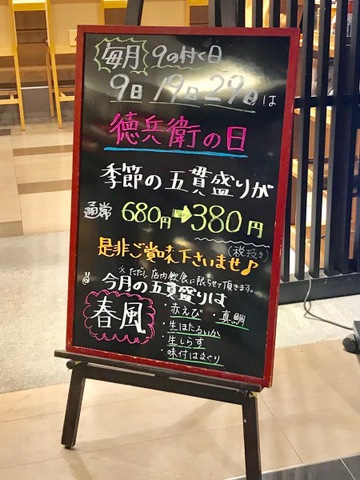 毎月 9の付く日
9日 19日 29日は
徳兵衛の日
季節の五貫盛りが
通常 680円➡380円
(税抜き)
是非ご賞味下さいませ♪
※ただし店内飲食に限らせて頂きます。
今月の五貫盛りは
春風
・赤えび ・真鯛
・生ほたるいか
・生しらす
・味付はまぐり